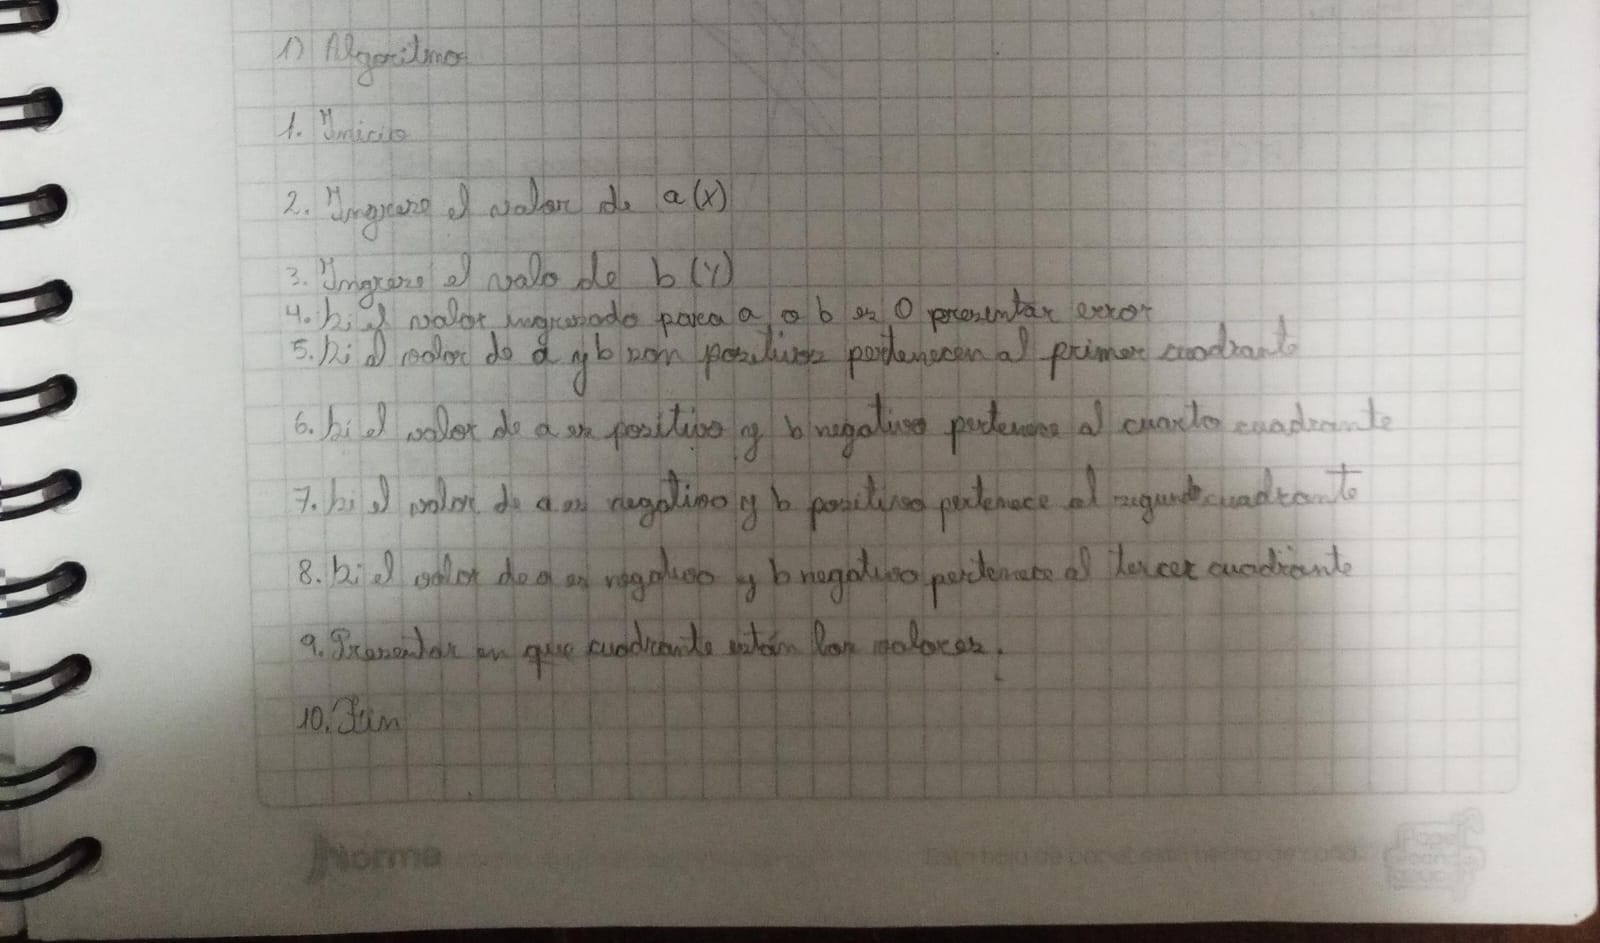 1) Algoritmos
1. Inicio
2. Ingrese el valor de a(X)
3. Ingrese el valo de b(Y)
4. Si el valor ingresado para a o b es 0 presentar error
5. Si el valor de a y b son positivos pertenecen al primer cuadrante
6. Si el valor de a es positivo y b negativo pertenece al cuarto cuadrante
7. Si el valor de a es negativo y b positivo pertenece al segundo cuadrante
8. Si el valor de a es negativo y b negativo pertenece al tercer cuadrante
9. Presentar en que cuadrante están los valores.
10. Fin
Norma